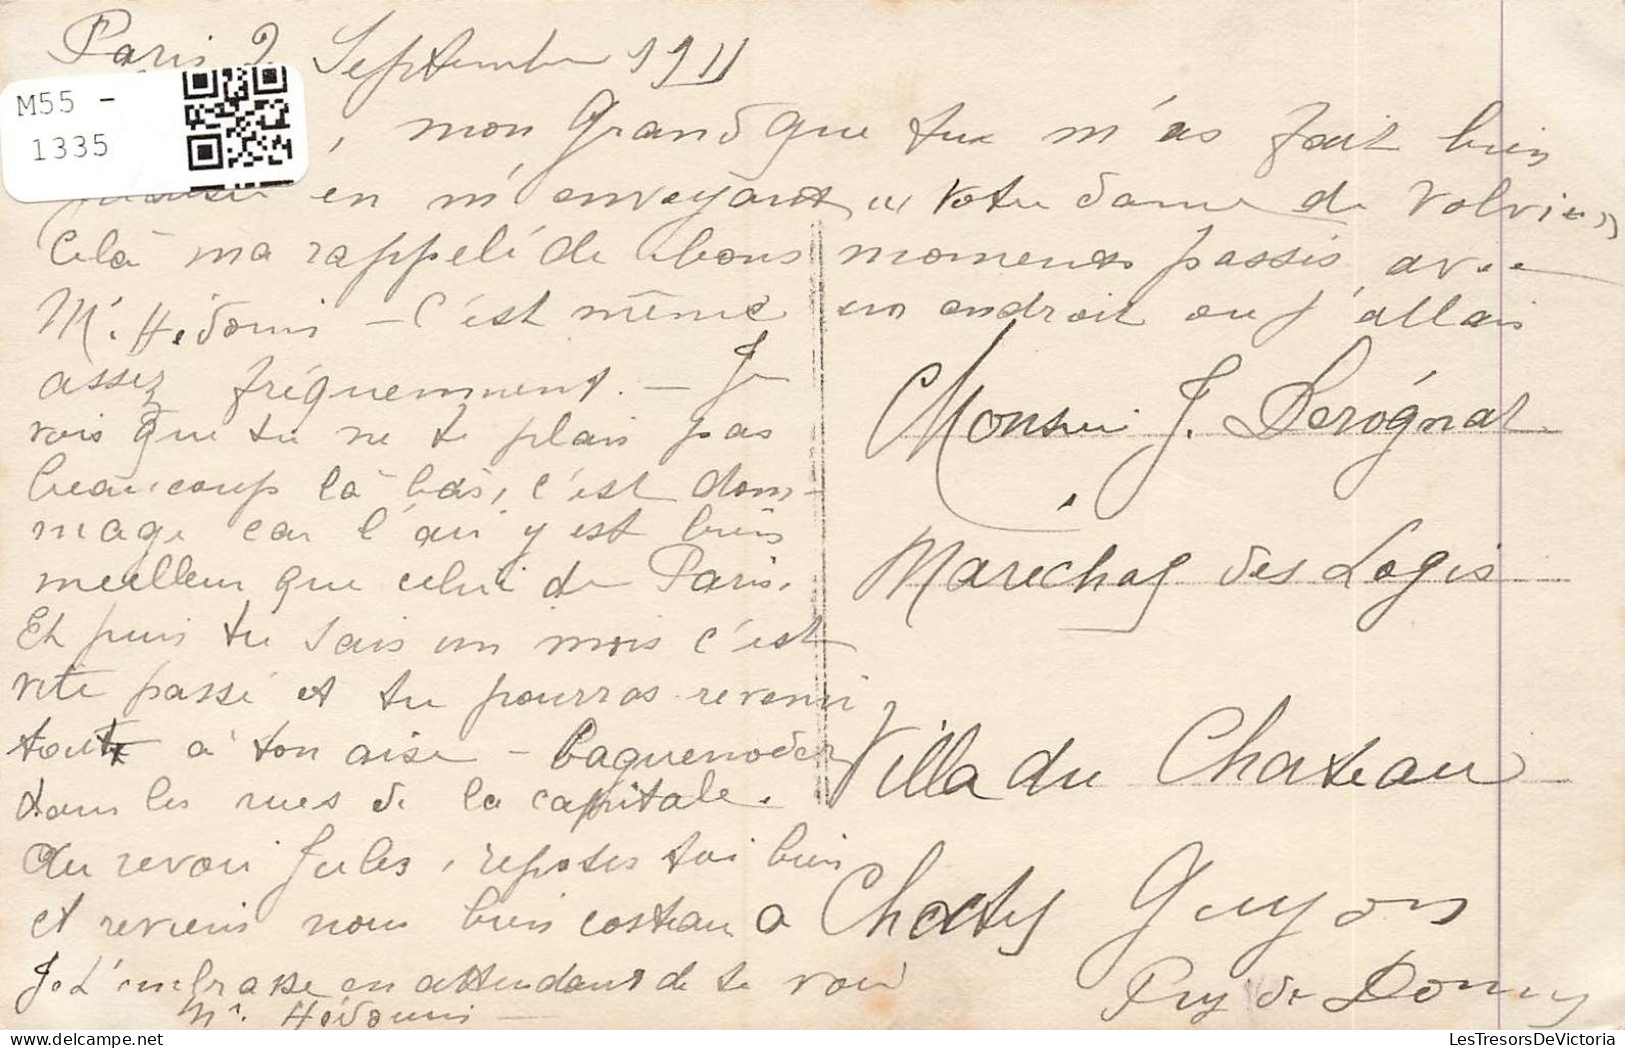 Paris 2 Septembre 1911
M55 -
1335
, mon Grand que tu m'as fait bien
en m'envoyant "Notre dame de Volvic"
Celà ma rappelé de bons moments passés avec
M. Hédouin - C'est même un endroit ou j'allais
assez fréquemment. - Je
vois que tu ne te plais pas
beaucoup là-bas, c'est dom-
mage car l'air y est bien
meilleur que celui de Paris.
Et puis tu sais un mois c'est
vite passé et tu pourras revenir
tout à ton aise - baguenoder
dans les rues de la capitale.
Au revoir Jules, reposes toi bien
et reviens nous bien costeau
Je t'embrasse en attendant de te voir
Mr. Hédouin
Monsieur J. Derognat
Maréchal des Logis
Villa du Chateau
a Chatel Guyon
Puy de Domme
LesTresorsDeVictoria